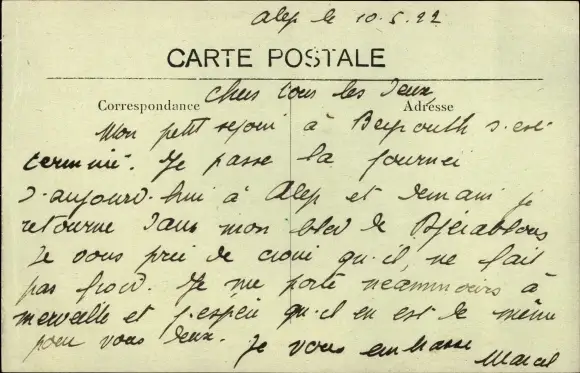 Alep le 10.5.22
CARTE POSTALE
Chers tous les deux
Correspondance
Adresse
Mon petit sejour à Beyrouth s'est
terminé. Je passe la journée
d'aujourd'hui à Alep et demain je
retourne dans mon bled de Djérablous
Je vous prie de croire qu'il ne fait
pas froid. Je me porte néanmoins à
merveille et j'espère qu'il en est de même
pour vous deux. Je vous embrasse
Marcel